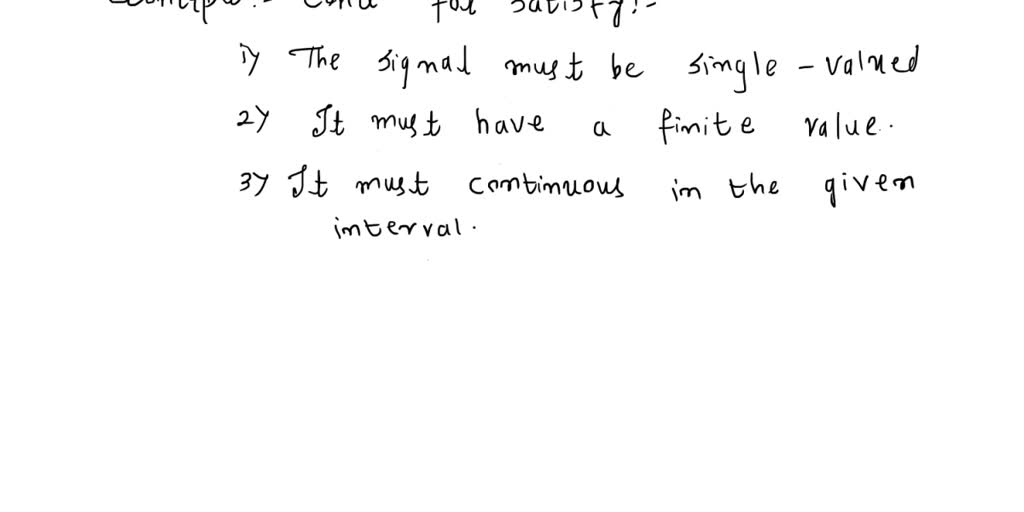 for satisfy :-
1) The signal must be single - valued
2) It must have a finite value.
3) It must continuous in the given
interval.